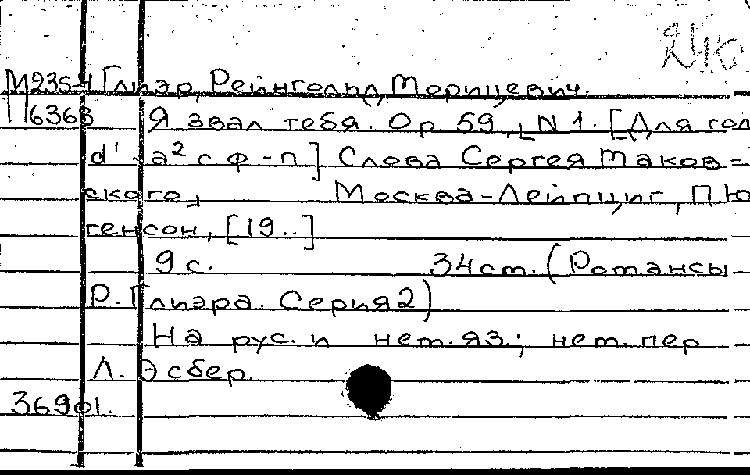 240
М2354 Глиэр, Рейнгольд Морицевич.
П6363 Я звал тебя. Ор 59, N 1. [Для гол
d' - a² с ф-п] Слова Сергея Маков=
ского, Москва-Лейпциг, П. Юр
генсон, [19..]
9 с. 34 cm. (Романсы
Р. Глиэра. Серия 2)
На рус. и нем. яз.; нем. пер
Л. Эсбер.
36901.